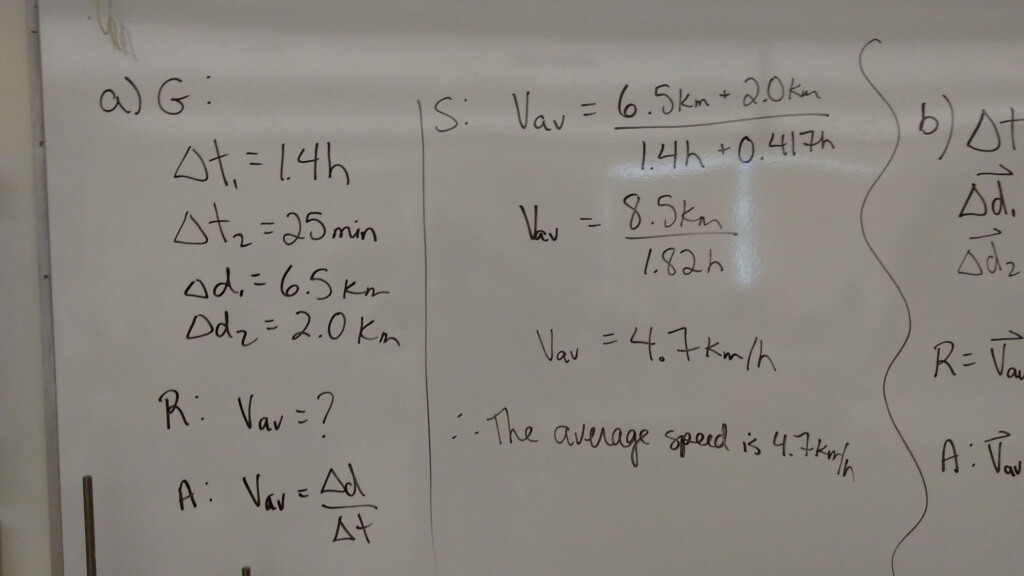 a) G:
Δt₁ = 1.4h
Δt₂ = 25 min
Δd₁ = 6.5 km
Δd₂ = 2.0 km
R: Vav = ?
A: Vav = Δd/Δt
S: Vav = (6.5km + 2.0km)/(1.4h + 0.417h)
Vav = 8.5km/1.82h
Vav = 4.7 km/h
∴ The average speed is 4.7km/h
b) Δt
Δd⃗₁
Δd⃗₂
R = V⃗av
A: V⃗av